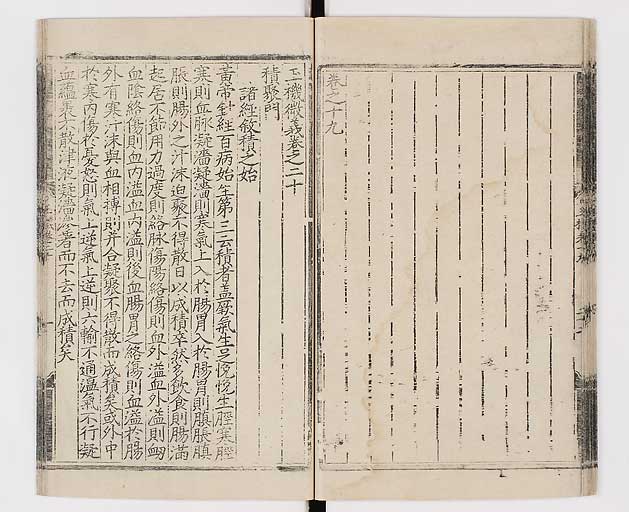 卷之十九
玉機微義卷之二十
積聚門
諸經敘積之始
黃帝針經百病始生第三云積者盖厥氣生足悗悗生脛寒脛
寒則血脉凝濇凝濇則寒氣上入扵腸胃入扵腸胃則䐜脹䐜
脹則腸外之汁沫迫聚不得散日以成積卒然多飲食則腸滿
起居不節用力過度則絡脉傷陽絡傷則血外溢血外溢則衂
血陰絡傷則血內溢血內溢則後血腸胃之絡傷則血溢扵腸
外有寒汁沫與血相搏則并合凝聚不得散而成積矣或外中
扵寒內傷扵憂怒則氣上逆氣上逆則六輸不通溫氣不行凝
血蘊裹不散津液凝濇滲著而不去而成積矣